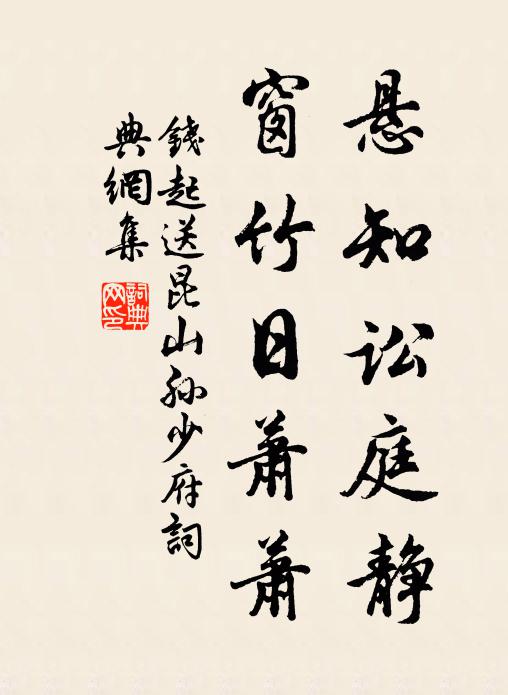 悬知讼庭静
窗竹日萧萧
錢起送昆山孙少府詞
典網集
詞典
网印